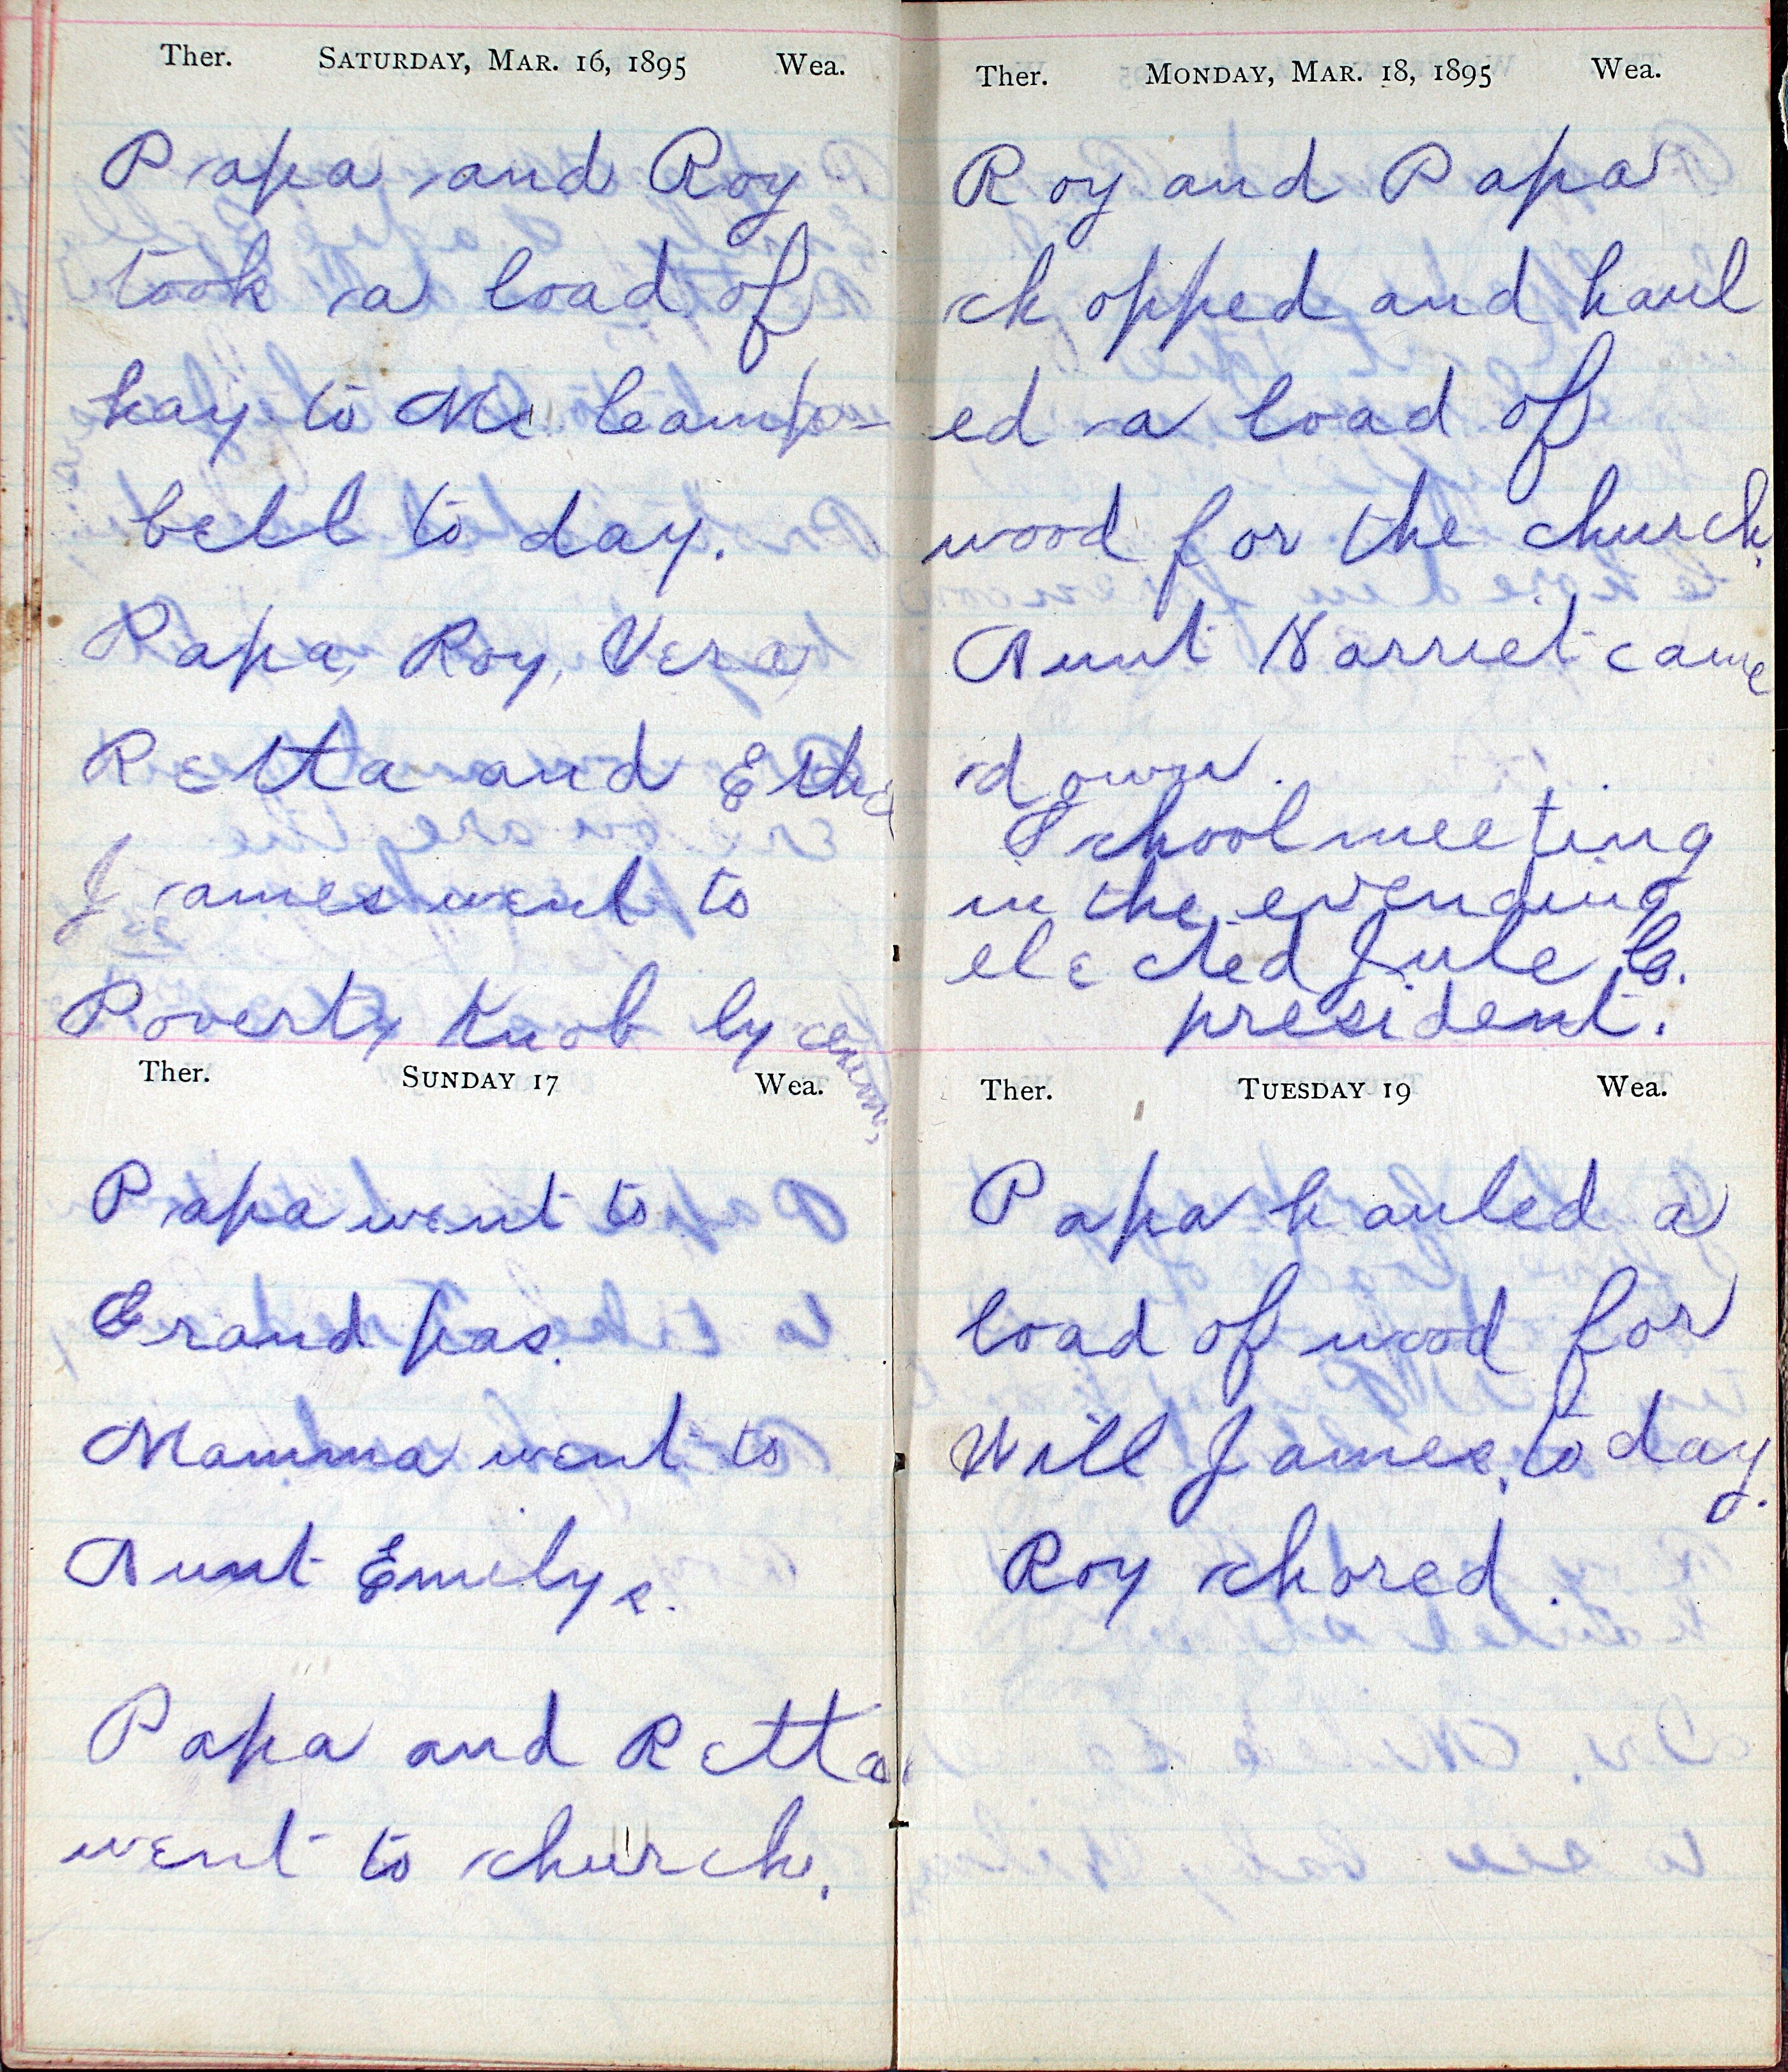 Ther. Saturday, Mar. 16, 1895 Wea.
Papa and Roy
took a load of
hay to Mc Camp-
bell to day.
Papa, Roy, Vera
Retta and Ethel
James went to
Poverty Knob lyceum,
Ther. Sunday 17 Wea.
Papa went to
Grand pas.
Mamma went to
Aunt Emilys.
Papa and Retta
went to church.
Ther. Monday, Mar. 18, 1895 Wea.
Roy and Papa
chopped and haul
ed a load of
wood for the church.
Aunt Harriet came
down.
School meeting
in the evending
elected Jule C.
president.
Ther. Tuesday 19 Wea.
Papa hauled a
load of wood for
Will James, to day.
Roy chored.